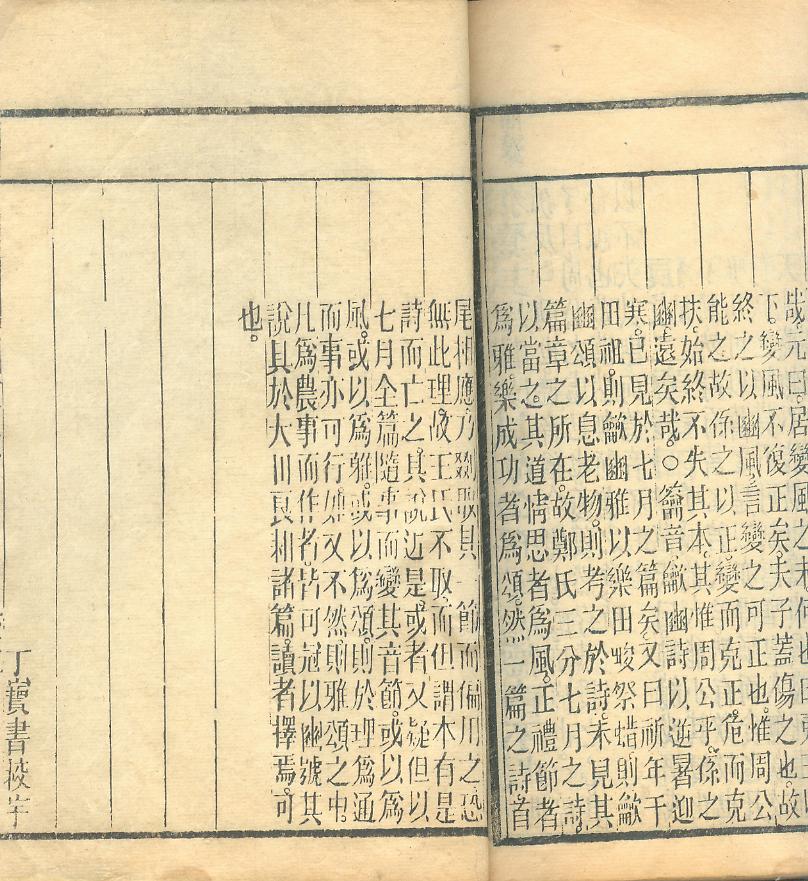 哉元曰居變風之末何也曰夷王以
下變風不復正矣夫子蓋傷之也故
終之以豳風言變之可正也惟周公
能之故係之以正變而克正危而克
扶始終不失其本其惟周公乎係之
豳遠矣哉○籥音龡豳詩以逆暑迎
寒已見於七月之篇矣又曰祈年于
田祖則龡豳雅以樂田畯祭蜡則龡
豳頌以息老物則考之於詩未見其
篇章之所在故鄭氏三分七月之詩
以當之其道情思者爲風正禮節者
爲雅樂成功者爲頌然一篇之詩首
尾相應乃剟取其一節而偏用之恐
無此理故王氏不取而但謂本有是
詩而亡之其說近是或者又疑但以
七月全篇隨事而變其音節或以爲
風或以爲雅或以爲頌則於理爲通
而事亦可行如又不然則雅頌之中
凡爲農事而作者皆可冠以豳號其
說具於大田良耜諸篇讀者擇焉可
也
丁寶書校字